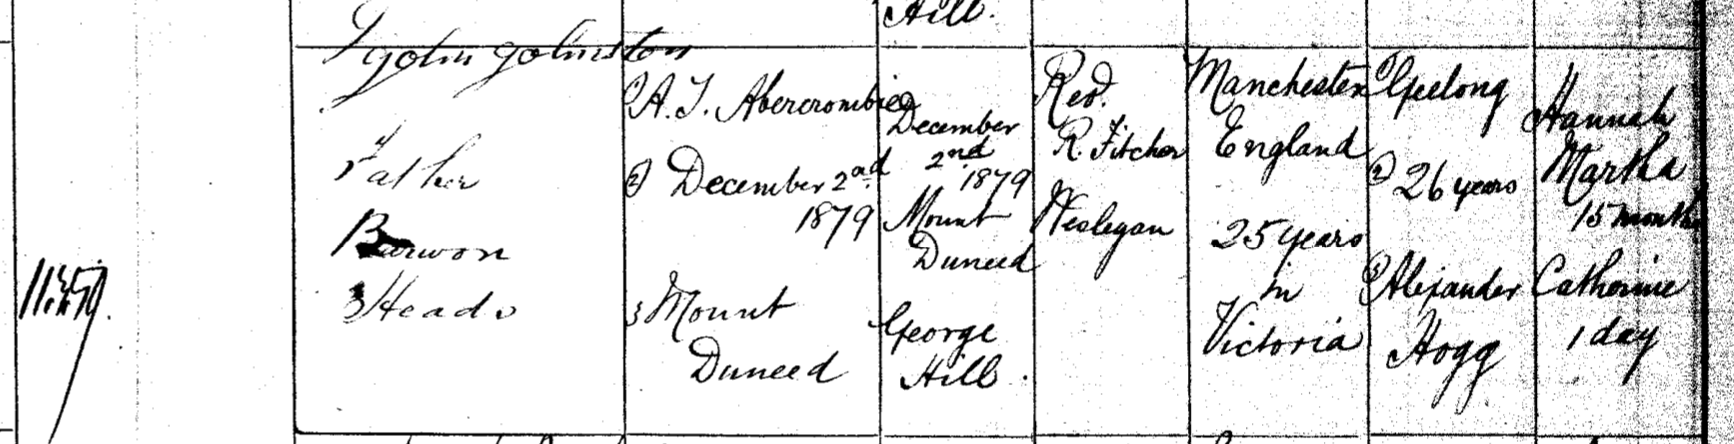 Hill.
John Johnston
Father
Barwon
Heads
(1) A. J. Abercrombie
(2) December 2nd
1879
3 Mount
Duneed
December
2nd
1879
Mount
Duneed
George
Hill.
Rev.
R. Fitcher
Wesleyan
Manchester
England
25 years
in
Victoria
(1) Geelong
(2) 26 years
(3) Alexander
Hogg
Hannah
Martha
15 months
Catherine
1 day